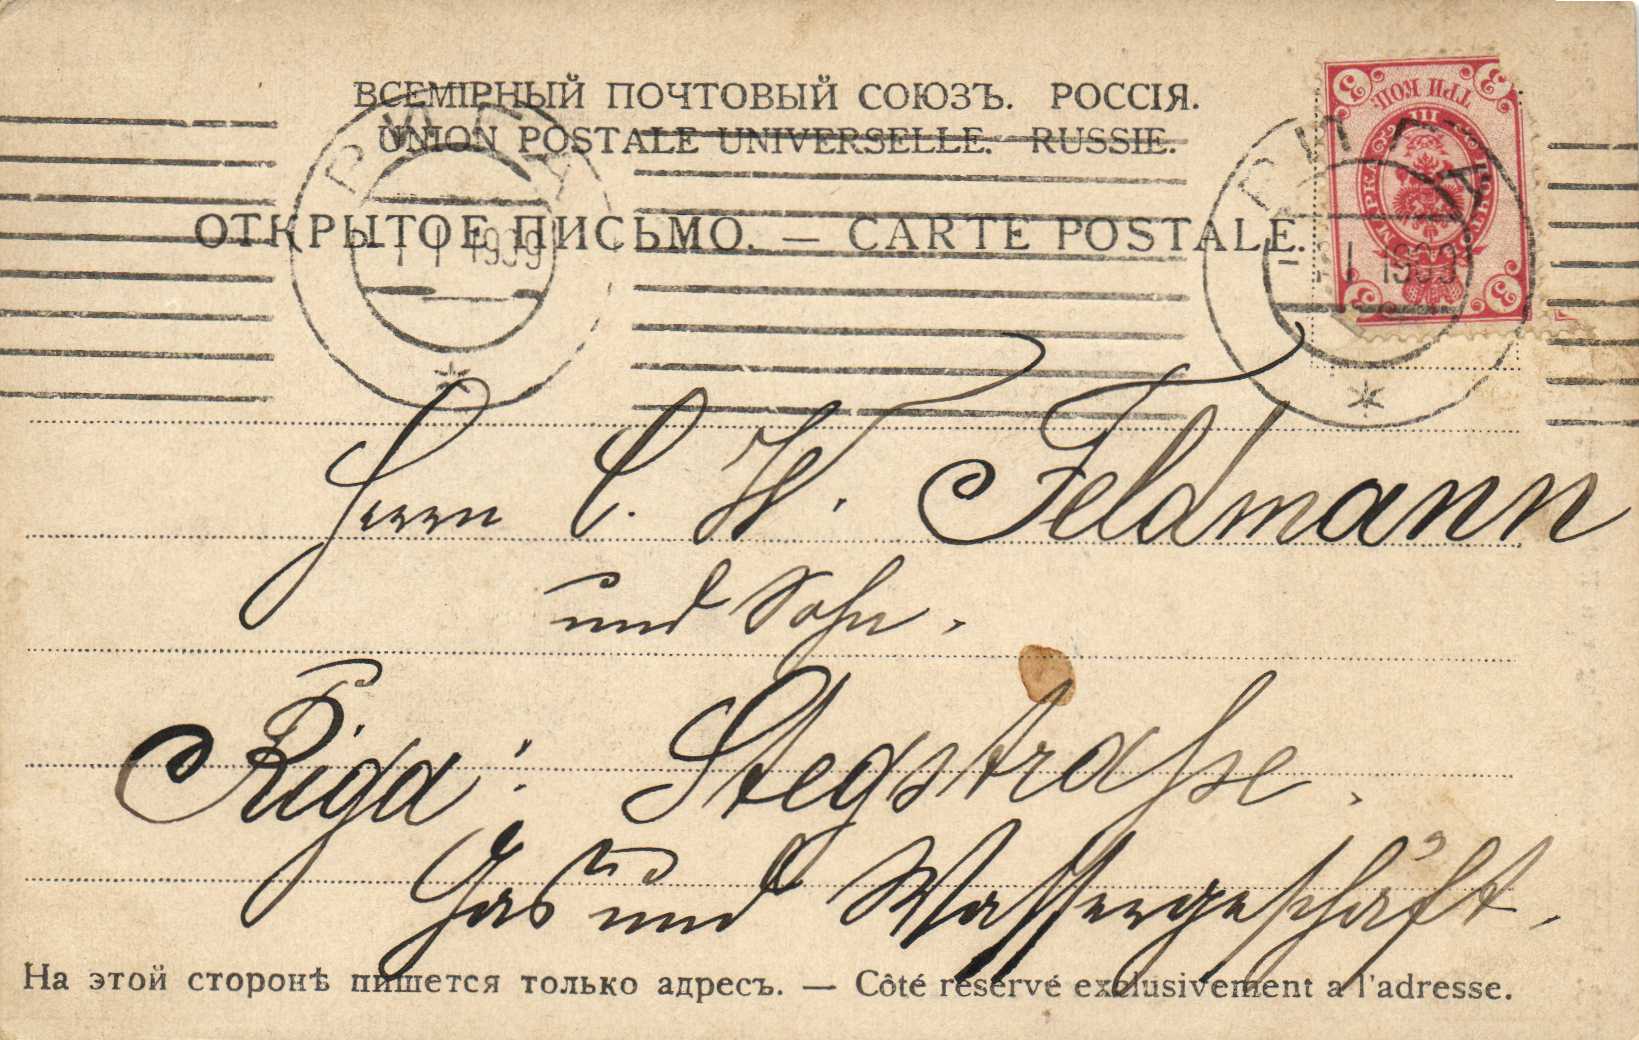 ВСЕМІРНЫЙ ПОЧТОВЫЙ СОЮЗЪ. РОССІЯ.
UNION POSTALE UNIVERSELLE. RUSSIE.
ОТКРЫТОЕ ПИСЬМО. — CARTE POSTALE.
РИГА
1 1 1909
РИГА
1 1909
3 3
ТРИ КОП.
МАРКА
3 3
Herrn C. W. Feldmann
und Sohn.
Riga: Stegstrasse.
Gas und Wassergeschäft.
На этой сторонѣ пишется только адресъ. — Côté réservé exclusivement a l'adresse.